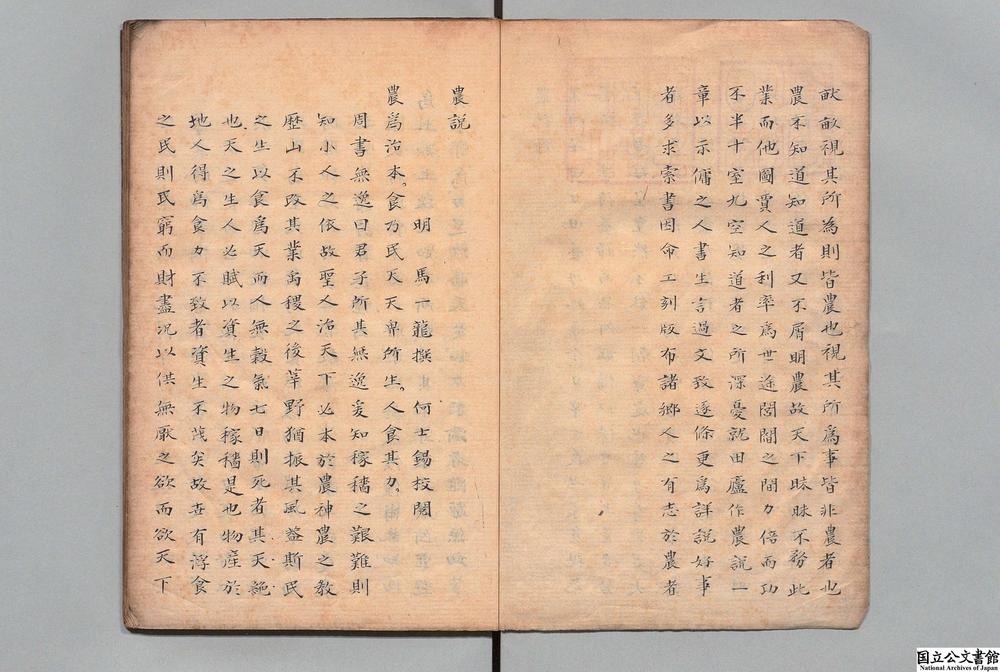 畎畝視其所為則皆農也視其所為事皆非農者也
農不知道知道者又不屑明農故天下貿貿不務此
業而他圖賈人之利率為世途閭閻之間力倍而功
不半十室九空知道者之所深憂就田廬作農說一
章以示傭之人書生言過文致逐條更為詳說好事
者多求索書因命工刻版布諸鄉人之有志於農者
農說
明 馬一龍撰 何士錫校閱
農爲治本食乃民天天畀所生人食其力
周書無逸曰君子所其無逸爰知稼穡之艱難則
知小人之依故聖人治天下必本於農神農之教
歷山不改其業禹稷之後莘野猶振其風蓋斯民
之生以食爲天而人無穀氣七日則死者其天絶
也天之生人必賦以資生之物稼穡是也物產於
地人得爲食力不致者資生不茂矣故世有浮食
之民則民窮而財盡況以供無厭之欲而欲天下
国立公文書館
National Archives of Japan